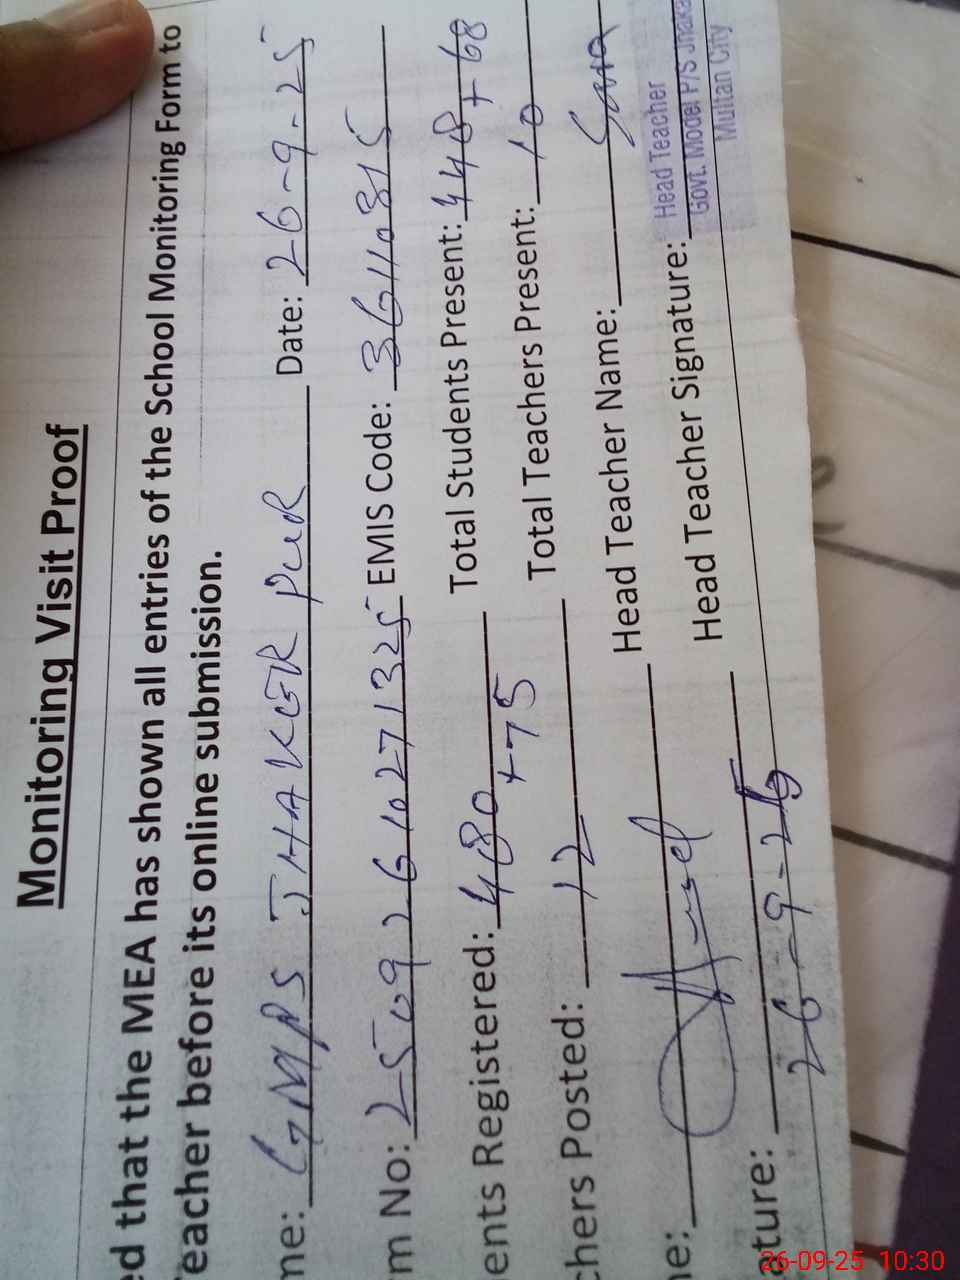 Monitoring Visit Proof
ed that the MEA has shown all entries of the School Monitoring Form to
Teacher before its online submission.
me: GMPS JHAKER PUR Date: 26-9-25
m No: 25092610271325 EMIS Code: 36110815
ents Registered: 480+75 Total Students Present: 448+68
chers Posted: 12 Total Teachers Present: 10
ne: Head Teacher Name:
ature: 26-9-25 Head Teacher Signature:
Head Teacher
Govt. Model P/S Jhaka
Multan City
26-09-25 10:30